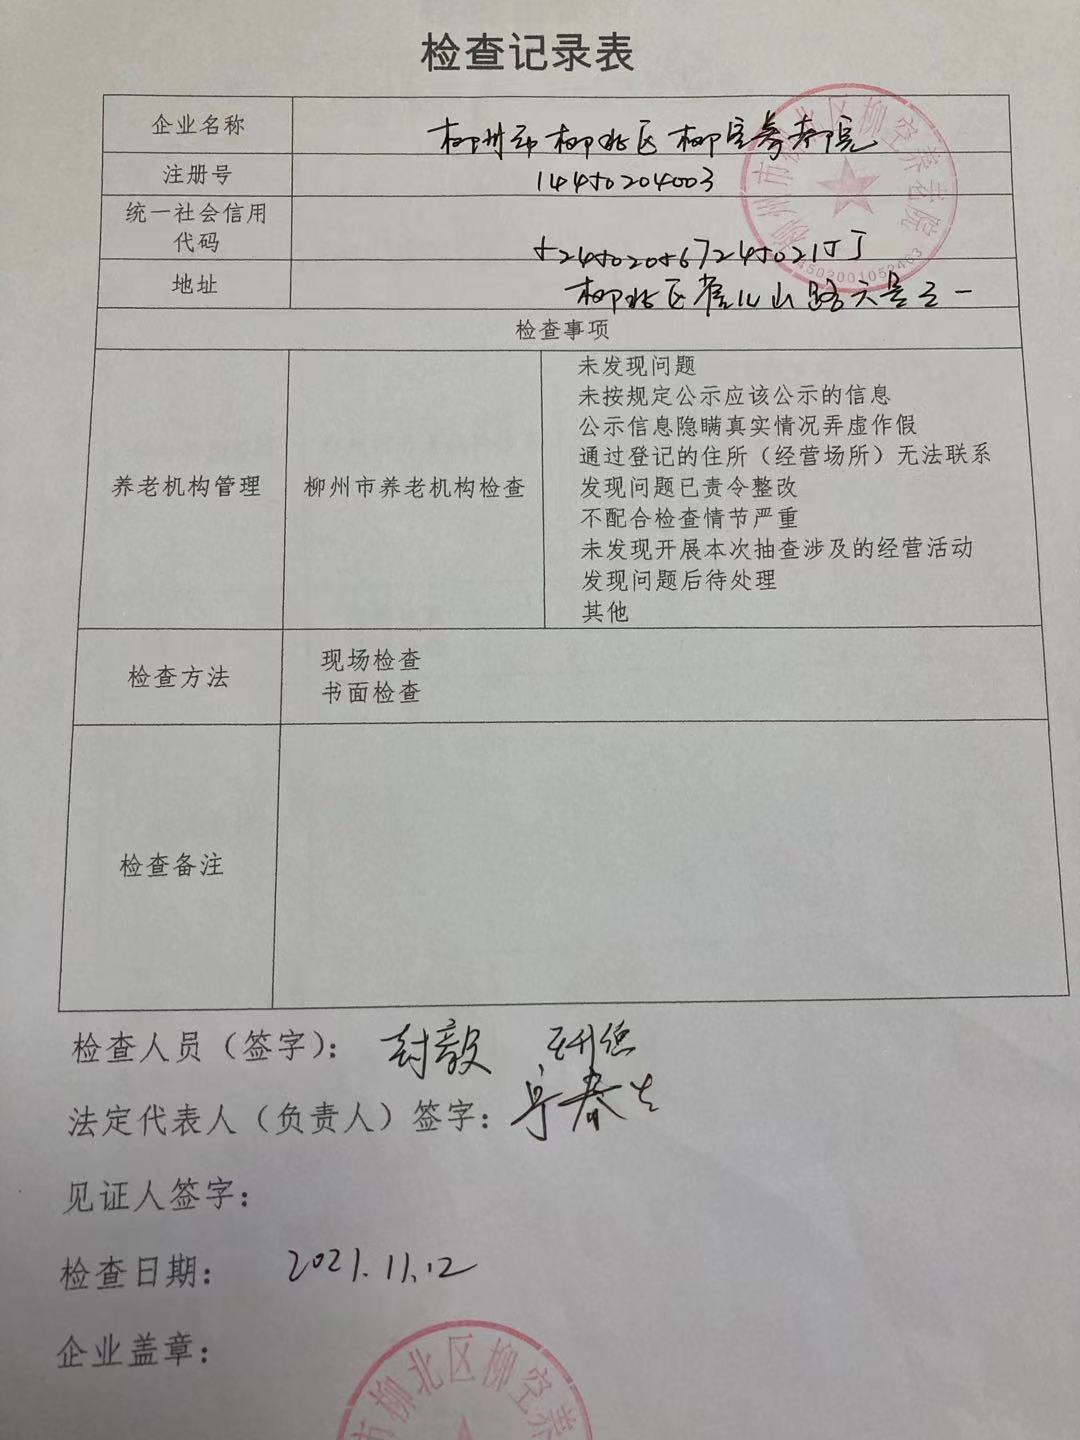 检查记录表
企业名称
柳州市柳北区柳空养老院
注册号
14450204003
统一社会信用
代码
地址
柳北区雀儿山路六号之一
检查事项
养老机构管理
柳州市养老机构检查
未发现问题
未按规定公示应该公示的信息
公示信息隐瞒真实情况弄虚作假
通过登记的住所（经营场所）无法联系
发现问题已责令整改
不配合检查情节严重
未发现开展本次抽查涉及的经营活动
发现问题后待处理
其他
检查方法
现场检查
书面检查
检查备注
检查人员（签字）： 封毅
法定代表人（负责人）签字：
见证人签字：
检查日期： 2021.11.12
企业盖章：
柳州市柳北区柳空养老院
4502001052463
市柳北区柳空养